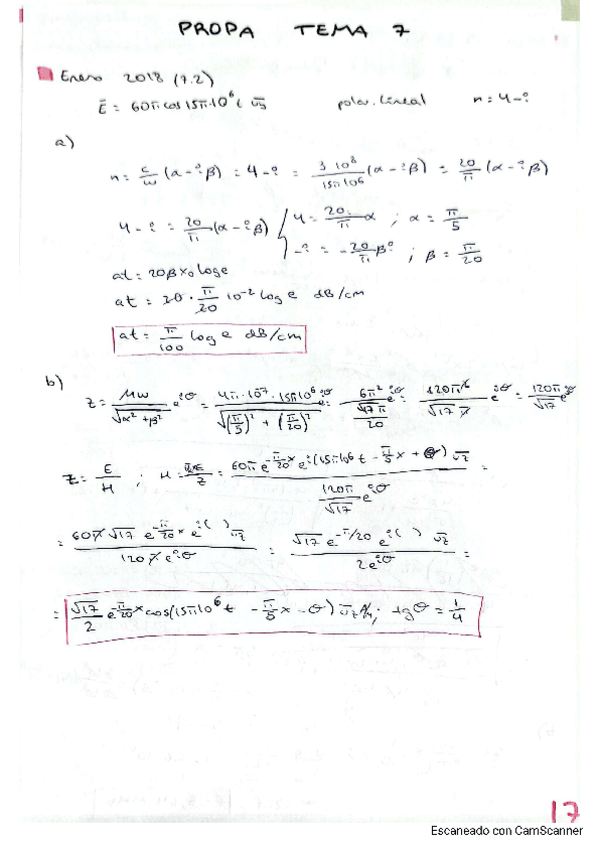 PROPA TEMA 7
Enero 2018 (7.2)
Ē = 60π cos 15π·10⁶ t ū₃ polar. lineal n = 4-i
a)
n = c/ω (α - iβ) = 4 - i = 3·10⁸/15π10⁶ (α - iβ) = 20/π (α - iβ)
4 - i = 20/π (α - iβ) { 4 = 20/π α ; α = π/5
-i = -20/π βi ; β = π/20
at = 20βx₀ log e
at = 20 · π/20 10⁻² log e dB/cm
at = π/100 log e dB/cm
b)
Z = μω/√(α² + β²) e^{iθ} = 4π·10⁻⁷·15π10⁶ e^{iθ}/√((π/5)² + (π/20)²) = 6π² e^{iθ}/(√17 π/20) = 120π²/(√17 π) e^{iθ} = 120π/√17 e^{iθ}
Z = E/H ; H = E/Z = 60π e^{-π/20 x} e^{i(15π10⁶ t - π/5 x + )} ū_z / (120π/√17 e^{iθ}) =
= 60π √17 e^{-π/20 x} e^{i( )} ū_z / (120π e^{iθ}) = √17 e^{-π/20} e^{i( )} ū_z / (2e^{iθ}) =
= √17/2 e^{-π/20 x} cos(15π10⁶ t - π/5 x - θ) ū_z ; tgθ = 1/4
17
Escaneado con CamScanner